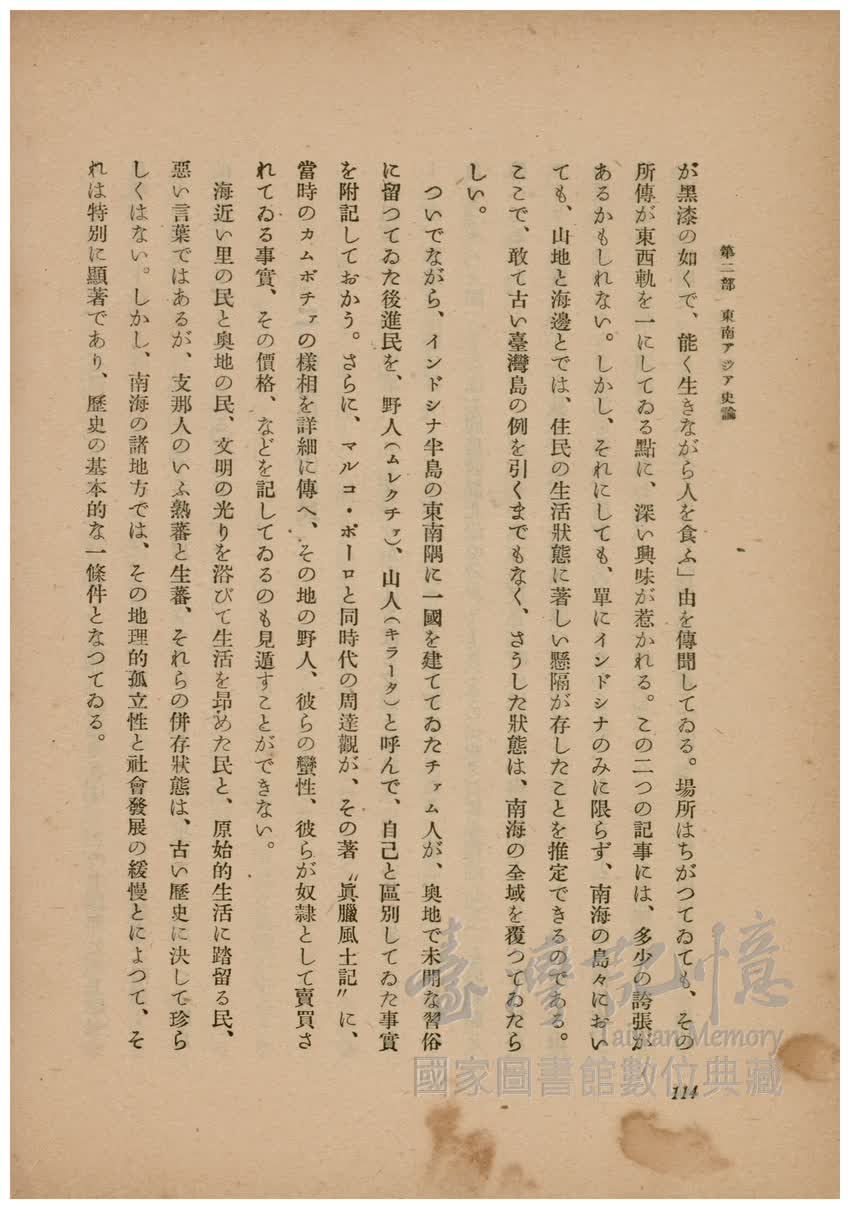 第二部　東南アジア史論
が黑漆の如くで、能く生きながら人を食ふ」由を傳聞してゐる。場所はちがつてゐても、その
所傳が東西軌を一にしてゐる點に、深い興味が惹かれる。この二つの記事には、多少の誇張が
あるかもしれない。しかし、それにしても、單にインドシナのみに限らず、南海の島々におい
ても、山地と海邊とでは、住民の生活狀態に著しい懸隔が存したことを推定できるのである。
ここで、敢て古い臺灣島の例を引くまでもなく、さうした狀態は、南海の全域を覆つてゐたら
しい。
ついでながら、インドシナ半島の東南隅に一國を建ててゐたチァム人が、奥地で未開な習俗
に留つてゐた後進民を、野人（ムレクチァ）、山人（キラータ）と呼んで、自己と區別してゐた事實
を附記しておかう。さらに、マルコ・ポーロと同時代の周達觀が、その著〝眞臘風土記〟に、
當時のカムボヂァの樣相を詳細に傳へ、その地の野人、彼らの蠻性、彼らが奴隷として賣買さ
れてゐる事實、その價格、などを記してゐるのも見遁すことができない。
海近い里の民と奥地の民、文明の光りを浴びて生活を昂めた民と、原始的生活に踏留る民、
惡い言葉ではあるが、支那人のいふ熟蕃と生蕃、それらの併存狀態は、古い歷史に決して珍ら
しくはない。しかし、南海の諸地方では、その地理的孤立性と社會發展の緩慢とによつて、そ
れは特別に顯著であり、歷史の基本的な一條件となつてゐる。
114
臺灣記憶
Taiwan Memory
國家圖書館數位典藏